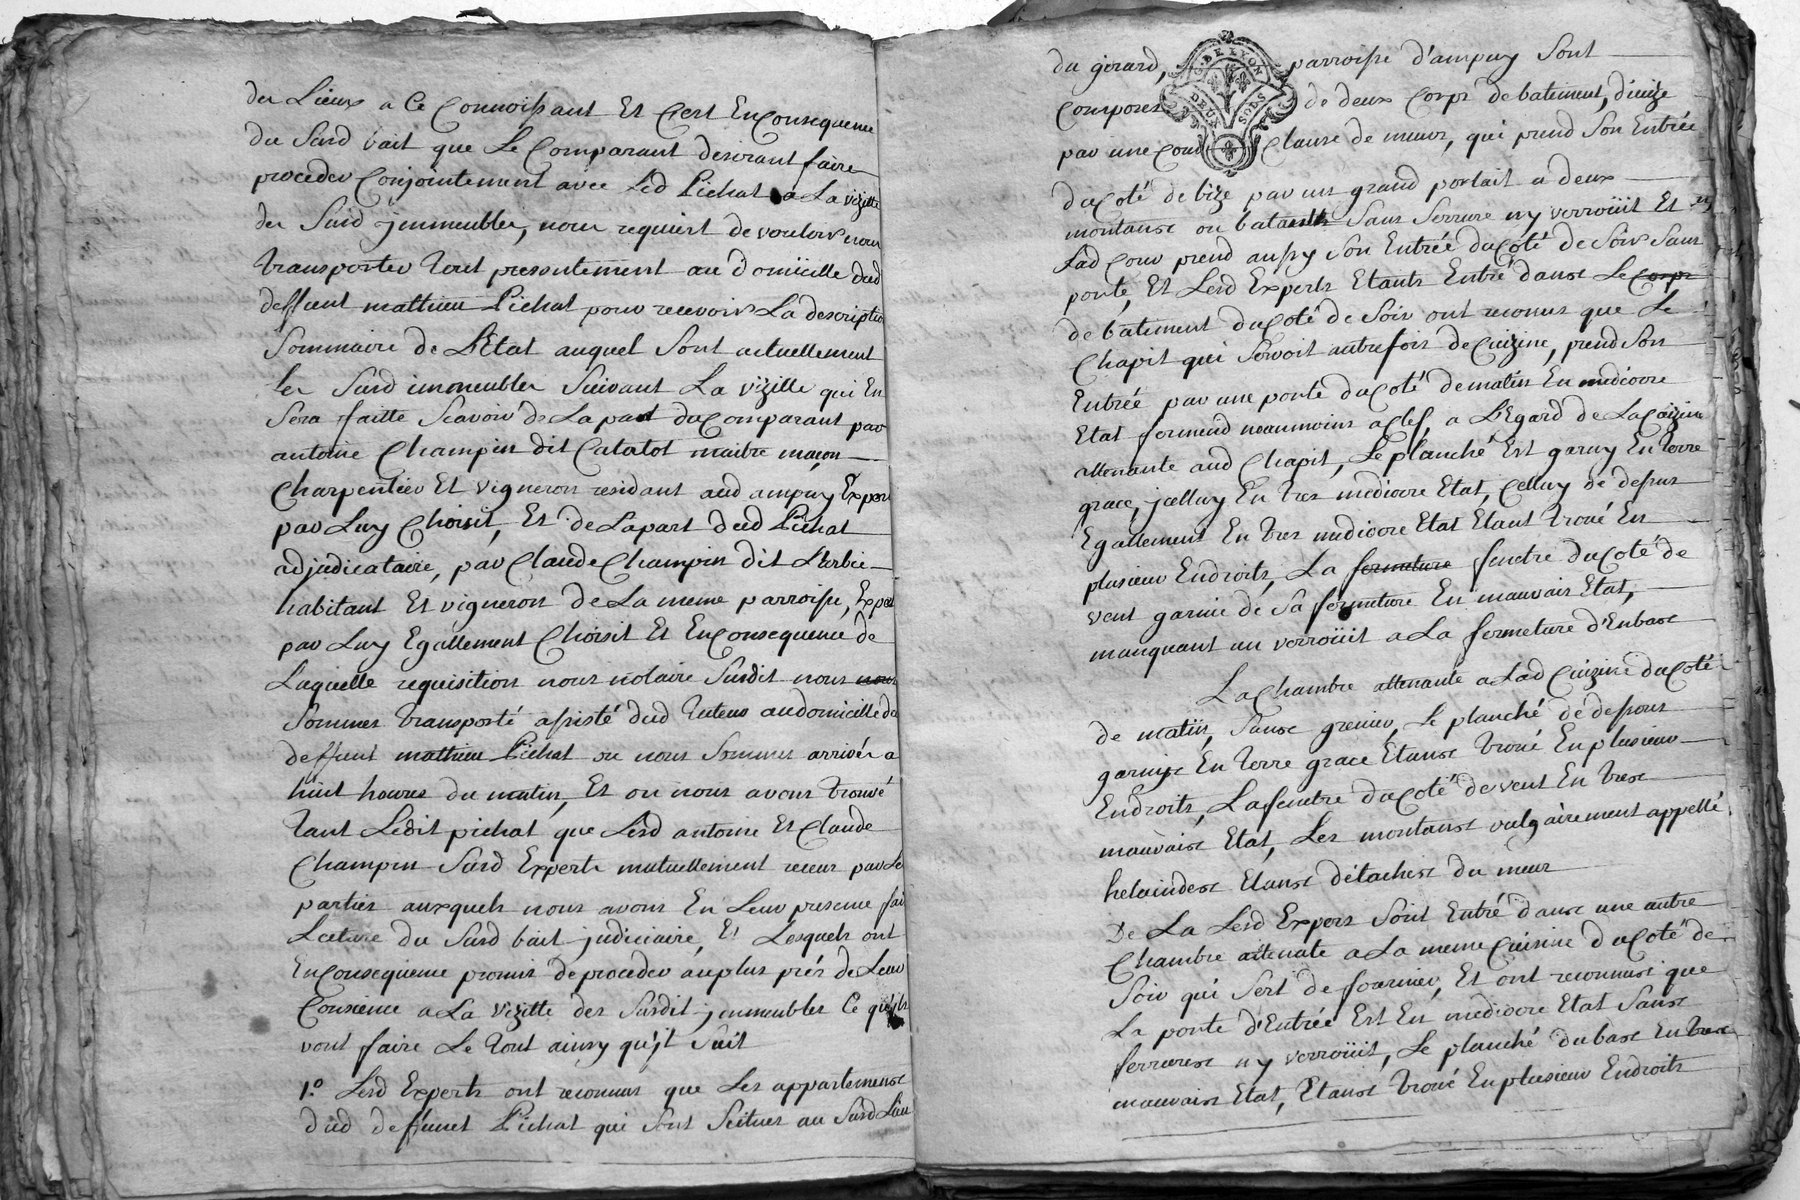 des Lieux a Ce Connoissant Et C'est En Consequence
du Susd bait que Le Comparant desirant faire
proceder Conjointement avec Led Pichat a La vizitte
des Susd jmmeubles, nous requiert de vouloir nous
transporter tout presentement au domicille dud
deffunt mathieu Pichat pour recevoir La description
Sommaire de L'Etat auquel Sont actuellement
les Susd immeubles Suivant La vizitte qui En
Sera faitte Scavoir de La part du Comparant par
antoine Champin dit Catalot maitre maçon
Charpentier Et vigneron residant aud ampuy Expert
par Luy Choisit, Et de La part dud Pichat
adjudicataire, par Claude Champin dit L'herbie
habitant Et vigneron de La meme parroisse, Expert
par Luy Egallement Choisit Et En Consequence de
Laquelle requisition nous notaire Susdit nous nous
Sommes transporté assisté dud tuteur au domicille du
deffunt mathieu Pichat ou nous Sommes arrivés a
huit heures du matin, Et ou nous avons trouvé
tant Ledit pichat que Lesd antoine Et Claude
Champin Susd Experts mutuellement receus par Les
parties auxquels nous avons En Leur presence fait
Lecture du Susd bait judiciaire, Et Lesquels ont
En Consequence promis de proceder au plus prés de Leur
Consience a La vizitte des Susdit jmmeubles Ce qu'ils
vont faire Le tout ainsy qu'jl Suit
1.° Lesd Experts ont reconnus que Les appartemense
dud deffunct Pichat qui Sont Scitues au Susd Lieu
du gerard, parroisse d'ampuy Sont
Composes de deux Corps de batiment, divizé
par une Cour Clause de meurs, qui prend Son Entrée
du Coté de bize par un grand portait a deux
montanse ou batants Sans Serrure ny verroüit Et
Lad Cour prend aussy Son Entrée du Coté de Soir Sans
porte, Et Lesd Experts Etants Entré danse Le Corps
de batiment du Coté de Soir ont reconnus que Le
Chapit qui Servoit autrefois de Cuizine, prend Son
Entrée par une porte du Coté de matin En mediocre
Etat fermend neanmoins a Clef, a L'Egard de La Cuizine
attenante aud Chapit, Le planché Est garny En terre
grace, jcelluy En tres mediocre Etat, Celluy de dessus
Egallement En tres mediocre Etat Etant troué En
plusieur Endroits, La fermeture fenetre du Coté de
vent garnie de Sa fermeture En mauvais Etat,
manquant un verroüit a La fermeture d'Enbase
La Chambre attenante a Lad Cuizine du Coté
de matin, Sanse grenier, Le planché de dessous
garnise En terre grace Etanse troué En plusieur
Endroits, La fenetre du Coté de vent En trese
mauvaise Etat, Les montanse vulgairement appellé
helaindese Etanse détachese du meur
De La Lesd Expers Sont Entré danse une autre
Chambre attenate a La meme Cuisine du Coté de
Soir qui Sert de fournier, Et ont reconnuse que
La porte d'Entrée Est En mediocre Etat Sanse
ferrurese ny verroüit, Le planché du base En trese
mauvaise Etat, Etanse troué En plusieur Endroits
G. DE LYON
DEUX SOLS